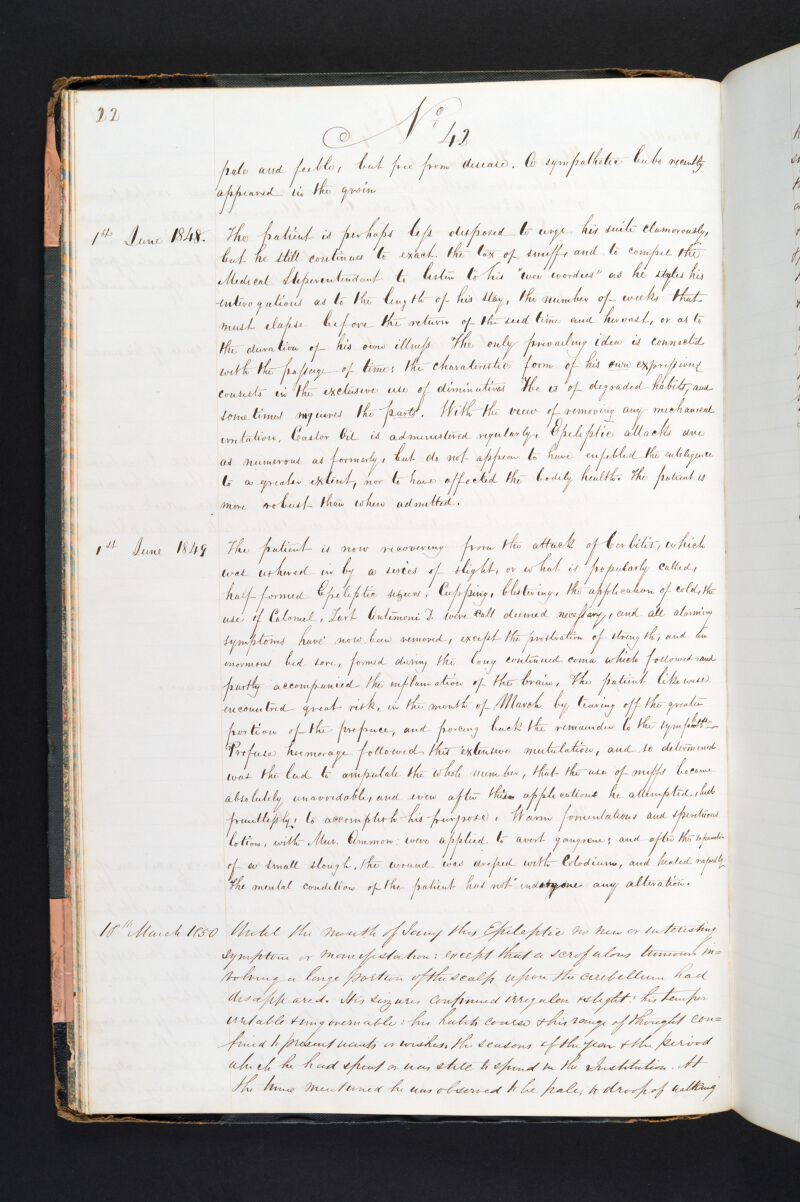 22
No 42
pale and feeble, but free from disease. A sympathetic bubo recently
appeared in the groin
1st June 1848. The patient is perhaps less disposed to urge his suite clamorously,
but he still continues to exact the tax of snuff, and to compel the
Medical Superintendant to listen to his "wee wordies" as he styles his
interogations as to the length of his stay, the number of weeks that
must elapse before the return of the seed time and hervast, or as to
the duration of his own illness The only prevailing idea is connected
with the passage of time; the charateristic form of his own expressions
consists in the exclusive use of diminutives He is of degraded habits, and
sometimes injures the parts. With the view of removing any mechanical
irritation, Castor Oil is administered regularly, Epileptic attacks are
as numerous as formerly, but do not appear to have enfebled the intelegence
to a greater extent, nor to have affected the bodily health. The patient is
more robust than when admitted.
1st June 1849 The patient is now recovering from the attack of Cerbitis, which
was ushered in by a series of slight, or what is popularly called,
half formed Epileptic seizures. Cupping, blistering, the application of cold, the
use of Calomel, Tart Antimoni were all deemed necessary, and all alarming
symptoms have now been removed, except the prostration of strength, and an
enormous bed sore, formed during the long continued coma which followed and
partly accompanied the inflamation of the brain. The patient likewise
encountred great risk, in the month of March by tearing off the greater
portion of the prepuce, and forcing back the remainder to the symphisis
Profuse hæmorage followed this extensive mutilation, and so determined
was the lad to amputate the whole member, that the use of muffs became
absolutely unavoidable, and even after their applications he attempted, but
fruitlessly, to accomplish his purpose. Warm fomentations and spirituous
lotion, with Mur. Ammon. were applied to avert gangrene; and after the separation
of a small slough, the wound was dressed with Colodium, and healed rapidly.
The mental condition of the patient has not undergone any alteration.
10th March 1850 Until the month of Jany this Epileptic no new or interesting
symptom or manifestation: except that a scrofulous tumour in=
volving a large portion of the scalp upon the cerebellum had
disappeared. His seizures continued irregular & slight: his temper
irritable & ungovernable: his habits course & his range of thought con=
fined to present wants or wishes, the seasons of the year & the period
which he had spent or was still to spend in the Institution. At
the time mentioned he was observed to be pale, to droop of walking